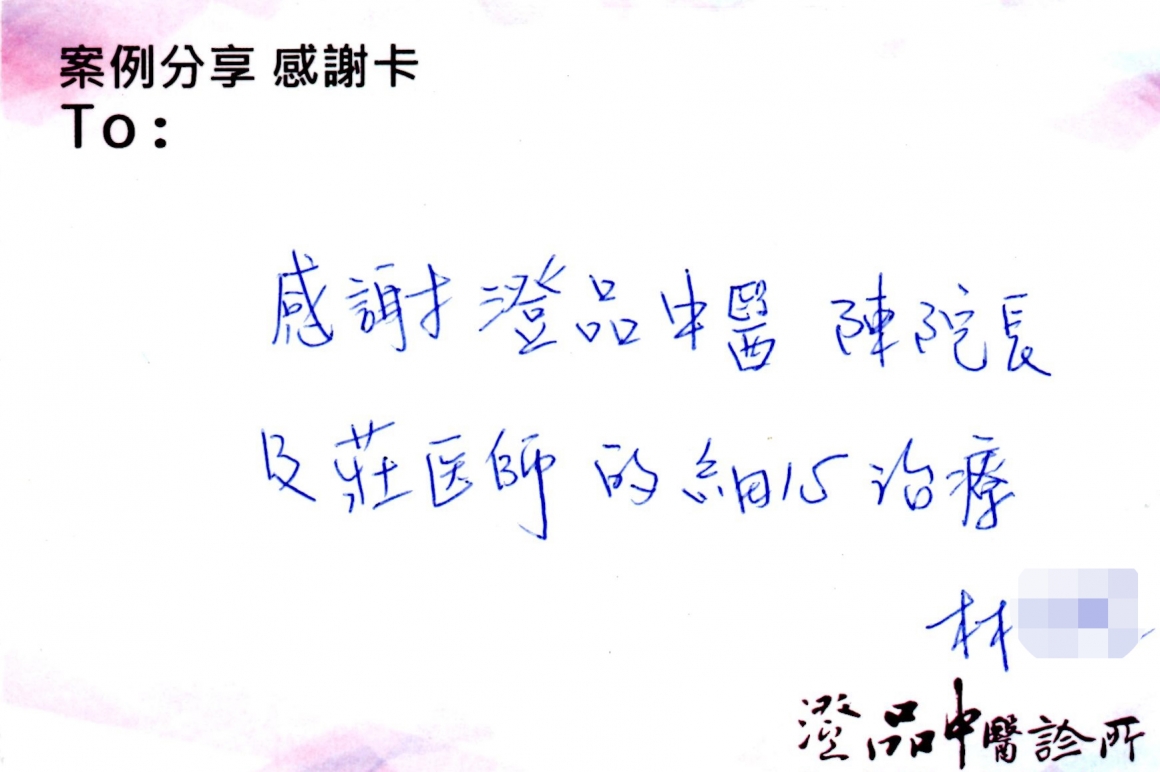 案例分享 感謝卡
To:
感謝澄品中醫 陳院長
及莊医師 的細心治療
林
澄品中醫診所